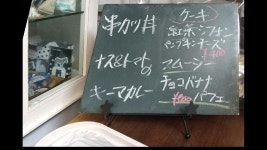 串カツ丼
ナス&トマトの
キーマカレー
ケーキ
紅茶シフォン
パンプキンチーズ
スムージー
チョコバナナ
パフェ